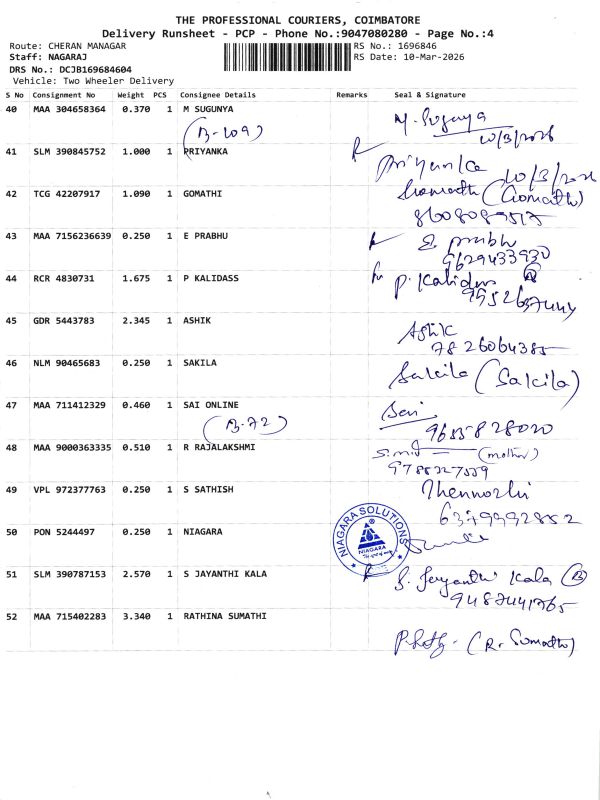 THE PROFESSIONAL COURIERS, COIMBATORE
Delivery Runsheet - PCP - Phone No.:9047080280 - Page No.:4
Route: CHERAN MANAGAR RS No.: 1696846
Staff: NAGARAJ RS Date: 10-Mar-2026
DRS No.: DCJB169684604
Vehicle: Two Wheeler Delivery
S No Consignment No Weight PCS Consignee Details Remarks Seal & Signature
40 MAA 304658364 0.370 1 M SUGUNYA M. Sugunya
(B-109) 10/3/2026
41 SLM 390845752 1.000 1 PRIYANKA Priyanka 10/3/2026
42 TCG 42207917 1.090 1 GOMATHI (Gomathi)
8608089517
43 MAA 7156236639 0.250 1 E PRABHU E. prabhu
9629433930
44 RCR 4830731 1.675 1 P KALIDASS P. Kalidass
45 GDR 5443783 2.345 1 ASHIK Ashik
7826064385
46 NLM 90465683 0.250 1 SAKILA Sakila (Sakila)
47 MAA 711412329 0.460 1 SAI ONLINE Sai
(B-72) 9655828020
48 MAA 9000363335 0.510 1 R RAJALAKSHMI (mother)
9788327559
49 VPL 972377763 0.250 1 S SATHISH Thennozhi
6379992852
50 PON 5244497 0.250 1 NIAGARA NIAGARA SOLUTIONS NIAGARA
51 SLM 390787153 2.570 1 S JAYANTHI KALA S. Jayanthi Kala (B)
9487441765
52 MAA 715402283 3.340 1 RATHINA SUMATHI (R. Sumathi)